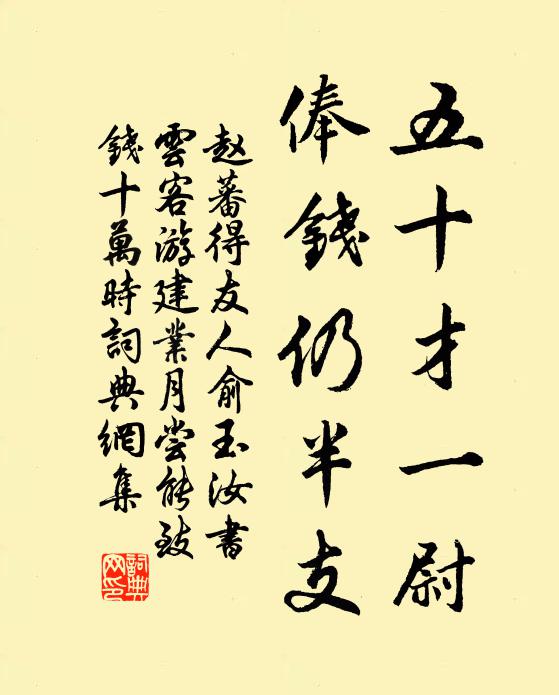 五十才一尉
俸錢仍半支
赵蕃得友人俞玉汝書
雲客游建業月尝能致
錢十萬時詞典網集
詞典
网印